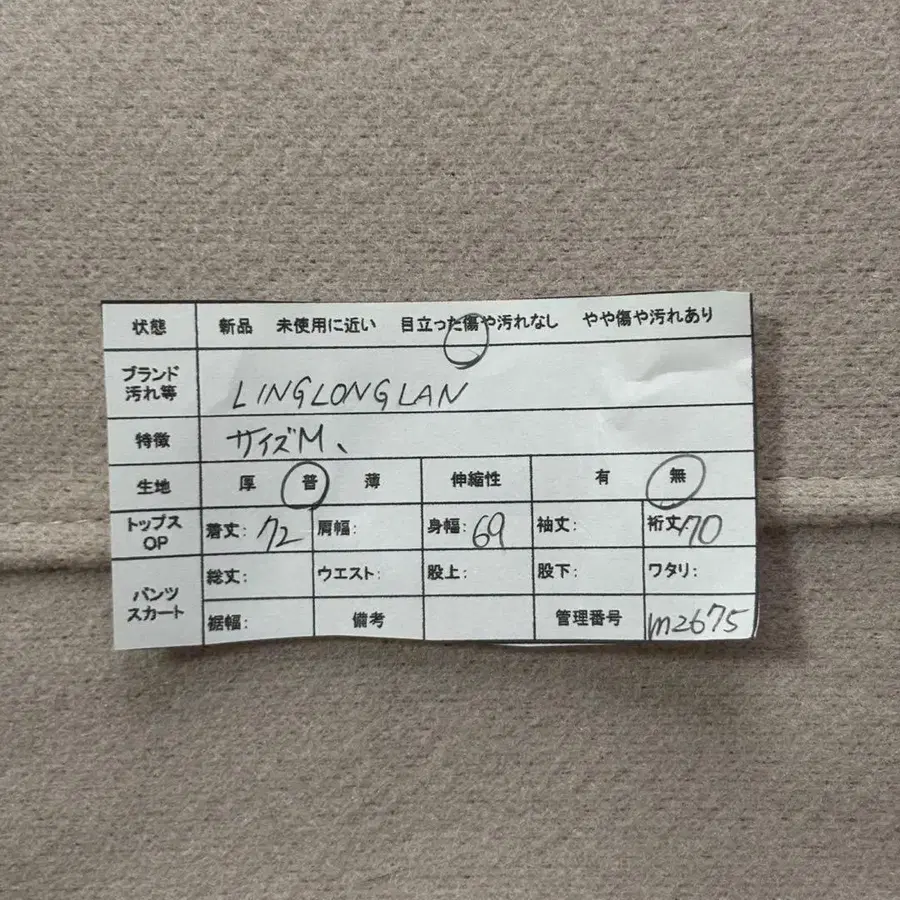 状態 新品 未使用に近い 目立った傷や汚れなし やや傷や汚れあり
ブランド
汚れ等 LINGLONGLAN
特徴 サイズM、
生地 厚 普 薄 伸縮性 有 無
トップス
OP 着丈: 72 肩幅: 身幅: 69 袖丈: 裄丈 70
パンツ
スカート 総丈: ウエスト: 股上: 股下: ワタリ:
裾幅: 備考 管理番号 m2675